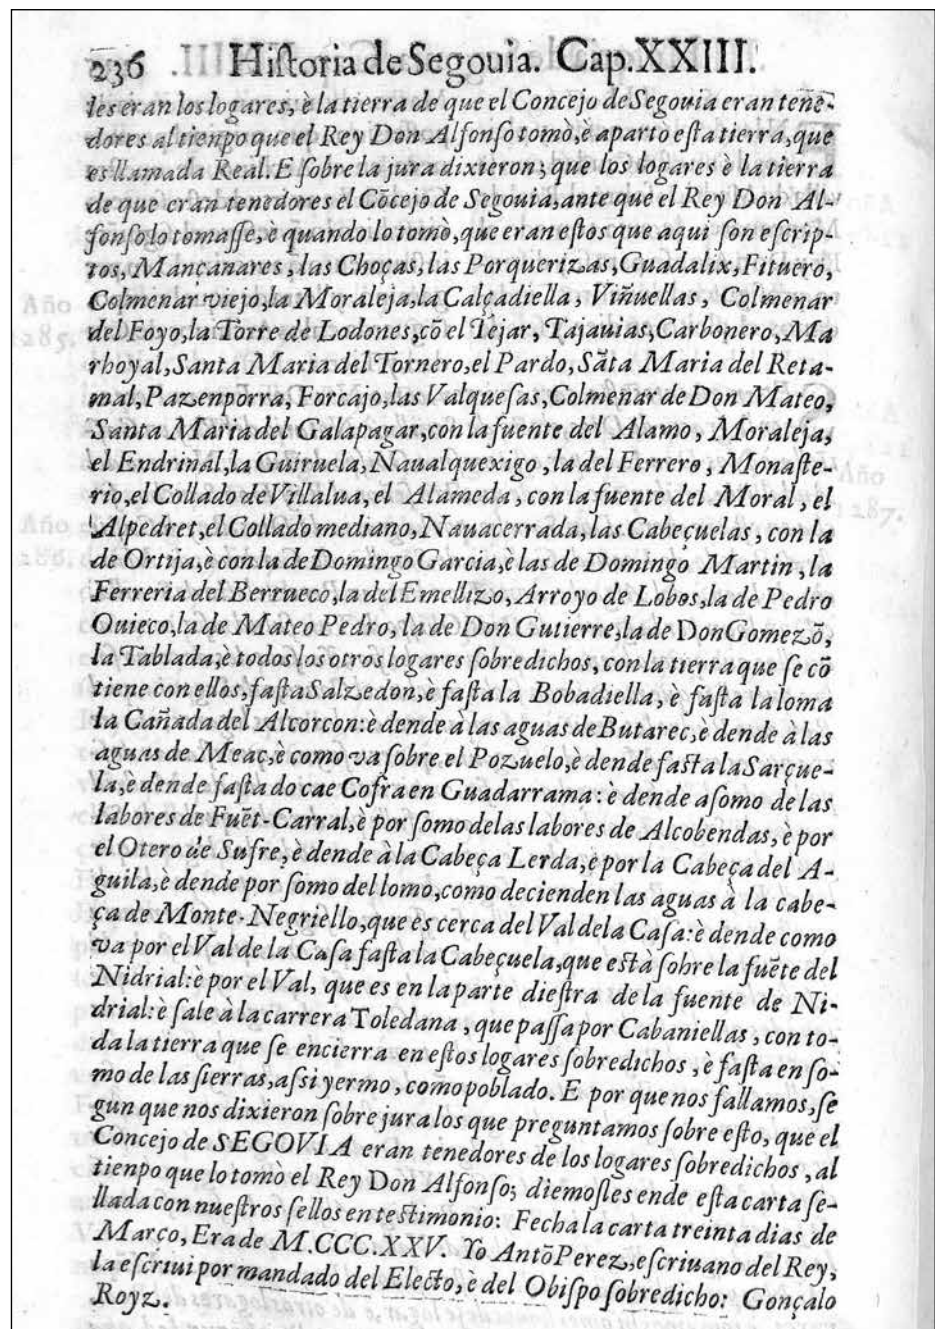 236 Hiſtoria de Segouia. Cap. XXIII.
les eran los logares, è la tierra de que el Concejo de Segouia eran tene-
dores al tienpo que el Rey Don Alfonſo tomò, è aparto eſta tierra, que
es llamada Real. E ſobre la jura dixieron; que los logares è la tierra
de que eran tenedores el Cōcejo de Segouia, ante que el Rey Don Al-
fonſo lo tomaſſe, è quando lo tomò, que eran eſtos que aqui ſon eſcrip-
tos, Mançanares, las Choças, las Porquerizas, Guadalix, Fituero,
Colmenar viejo, la Moraleja, la Calçadiella, Viñuellas, Colmenar
del Foyo, la Torre de Lodones, cō el Tejar, Tajauias, Carbonero, Ma
rhoyal, Santa Maria del Tornero, el Pardo, Sāta Maria del Reta-
mal, Pazenporra, Forcajo, las Valqueſas, Colmenar de Don Mateo,
Santa Maria del Galapagar, con la fuente del Alamo, Moraleja,
el Endrinal, la Guiruela, Naualquexigo, la del Ferrero, Monaſte-
rio, el Collado de Villalua, el Alameda, con la fuente del Moral, el
Alpedret, el Collado mediano, Nauacerrada, las Cabeçuelas, con la
de Ortija, è con la de Domingo Garcia, è las de Domingo Martin, la
Ferreria del Berrueco, la del Emellizo, Arroyo de Lobos, la de Pedro
Ouieco, la de Mateo Pedro, la de Don Gutierre, la de Don Gomezō,
la Tablada, è todos los otros logares ſobredichos, con la tierra que ſe cō
tiene con ellos, faſta Salzedon, è faſta la Bobadiella, è faſta la loma
la Cañada del Alcorcon: è dende à las aguas de Butarec, è dende à las
aguas de Meac, è como va ſobre el Pozuelo, è dende faſta la Sarçue-
la, è dende faſta do cae Cofra en Guadarrama: è dende aſomo de las
labores de Fuēt-Carral, è por ſomo de las labores de Alcobendas, è por
el Otero de Sufre, è dende à la Cabeça Lerda, è por la Cabeça del A-
guila, è dende por ſomo del lomo, como decienden las aguas à la cabe-
ça de Monte-Negriello, que es cerca del Val de la Caſa: è dende como
va por el Val de la Caſa faſta la Cabeçuela, que eſtà ſobre la fuēte del
Nidrial: è por el Val, que es en la parte dieſtra de la fuente de Ni-
drial: è ſale à la carrera Toledana, que paſſa por Cabaniellas, con to-
da la tierra que ſe encierra en eſtos logares ſobredichos, è faſta en ſo-
mo de las ſierras, aſsi yermo, como poblado. E por que nos fallamos, ſe
gun que nos dixieron ſobre jura los que preguntamos ſobre eſto, que el
Concejo de SEGOVIA eran tenedores de los logares ſobredichos, al
tienpo que lo tomò el Rey Don Alfonſo; diemoſles ende eſta carta ſe-
llada con nueſtros ſellos en teſtimonio: Fecha la carta treinta dias de
Março, Era de M.CCC.XXV. Yo Antō Perez, eſcriuano del Rey,
la eſcriui por mandado del Electo, è del Obiſpo ſobredicho: Gonçalo
Royz.
Año
1285.
Año
1286.
Año
1287.